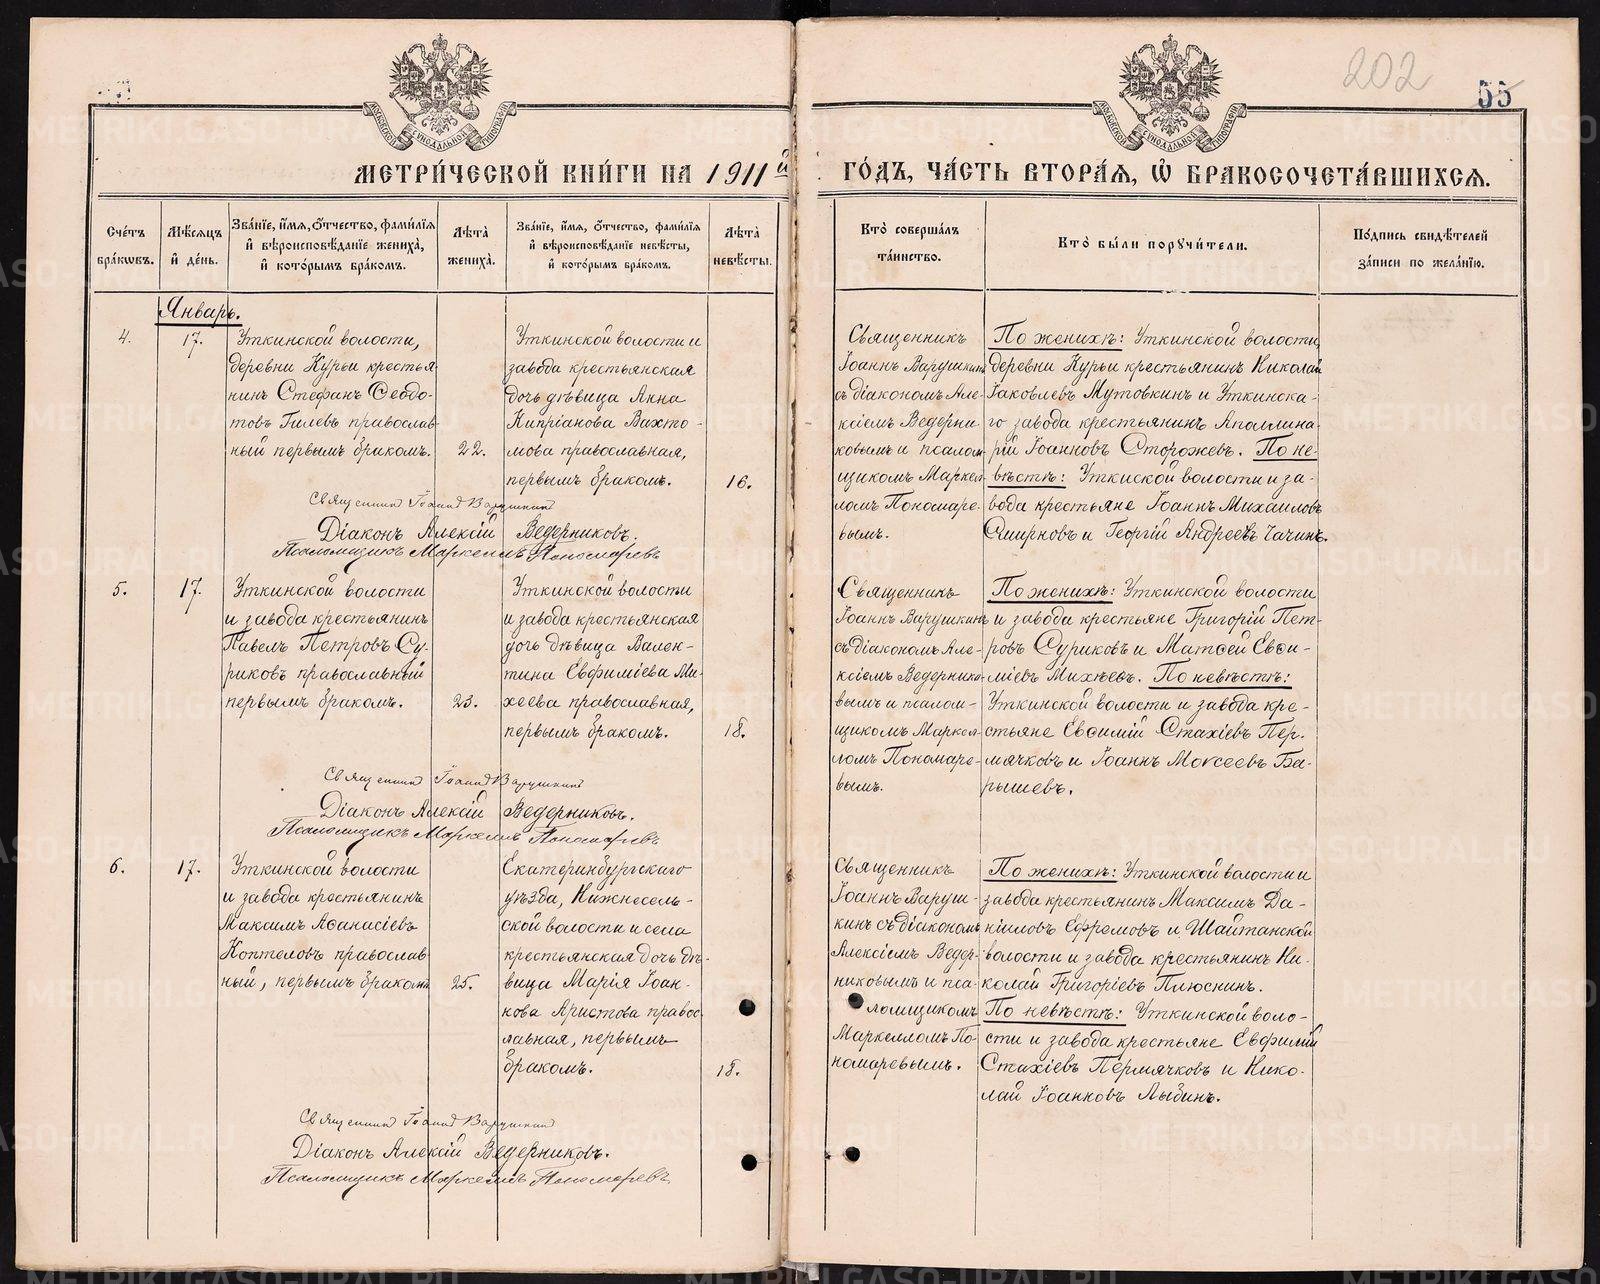 202
55
МОСКОВСКОЙ СѴНОДАЛЬНОЙ ТИПОГРАФІИ
МОСКОВСКОЙ СѴНОДАЛЬНОЙ ТИПОГРАФІИ
МЕТРИ́ЧЕСКОЙ КНИ́ГИ НА 1911й
ГО́ДЪ, ЧА́СТЬ ВТОРА́Я, Ѽ БРАКОСОЧЕТА́ВШИХСЯ.
Сче́тъ
бра́кωвъ.
Мѣ́сяцъ
и҆ де́нь.
Зва́нїе, и҆́мя, ѻ҆́тчество, фами́лїя
и҆ вѣроисповѣ́данїе жениха̀,
и҆ кото́рымъ бра́комъ.
Лѣ́та
жениха̀.
Зва́нїе, и҆́мя, ѻ҆́тчество, фами́лїя
и҆ вѣроисповѣ́данїе невѣ́сты,
и҆ кото́рымъ бра́комъ.
Лѣ́та
невѣ́сты.
Кто̀ соверша́лъ
та́инство.
Кто̀ бы́ли порꙋчи́тели.
По́дпись свидѣ́телей
за́писи по жела́нїю.
Январь.
4.
17.
Уткинской волости,
деревни Курьи крестья-
нинъ Стефанъ Ѳеодо-
товъ Гилевъ православ-
ный первымъ бракомъ.
22.
Уткинской волости и
завода крестьянская
дочь дѣвица Анна
Кипріанова Вахто-
мова православная,
первымъ бракомъ.
16.
Священникъ
Іоаннъ Варушкинъ
съ діакономъ Але-
ксіемъ Ведерни-
ковымъ и псалом-
щикомъ Маркел-
ломъ Пономаре-
вымъ.
По женихѣ: Уткинской волости,
деревни Курьи крестьянинъ Николай
Іаковлевъ Мутовкинъ и Уткинска-
го завода крестьянинъ Аполлина-
рій Іоанновъ Сторожевъ. По не-
вѣстѣ: Уткиской волости и за-
вода крестьяне Іоаннъ Михаиловъ
Смирновъ и Георгій Андреевъ Чачинъ.
Священникъ Іоаннъ Варушкинъ
Діаконъ Алексій Ведерниковъ.
Псаломщикъ Маркеллъ Пономаревъ
5.
17.
Уткинской волости
и завода крестьянинъ
Павелъ Петровъ Су-
риковъ православный
первымъ бракомъ.
23.
Уткинской волости
и завода крестьянская
дочь дѣвица Вален-
тина Евфиміева Ми-
хеева православная,
первымъ бракомъ.
18.
Священникъ
Іоаннъ Варушкинъ
съ діакономъ Але-
ксіемъ Ведернико-
вымъ и псалом-
щикомъ Маркел-
ломъ Пономаре-
вымъ.
По женихѣ: Уткинской волости
и завода крестьяне Григорій Пет-
ровъ Суриковъ и Матѳей Евѳи-
міевъ Михѣевъ. По невѣстѣ:
Уткинской волости и завода кре-
стьяне Евѳимій Стахіевъ Пер-
мячковъ и Іоаннъ Моѵсеевъ Ба-
рышевъ.
Священникъ Іоаннъ Варушкинъ
Діаконъ Алексій Ведерниковъ.
Псаломщикъ Маркеллъ Пономаревъ
6.
17.
Уткинской волости
и завода крестьянинъ
Максимъ Аѳанасіевъ
Коптеловъ православ-
ный, первымъ бракомъ
25.
Екатеринбургскаго
уѣзда, Нижнесель-
ской волости и села
крестьянская дочь дѣ-
вица Марія Іоан-
нова Аристова правос-
лавная, первымъ
бракомъ.
18.
Священникъ
Іоаннъ Варуш-
кинъ съ діакономъ
Алексіемъ Ведер-
никовымъ и пса-
ломщикомъ
Маркелломъ По-
номаревымъ.
По женихѣ: Уткинской волости и
завода крестьянинъ Максимъ Да-
ніиловъ Ефремовъ и Шайтанской
волости и завода крестьянинъ Ни-
колай Григоріевъ Плюснинъ.
По невѣстѣ: Уткинской воло-
сти и завода крестьяне Евфимій
Стахіевъ Пермячковъ и Нико-
лай Іоанновъ Лыбинъ.
Священникъ Іоаннъ Варушкинъ
Діаконъ Алексій Ведерниковъ.
Псаломщикъ Маркеллъ Пономаревъ
METRIKI.GASO-URAL.RU